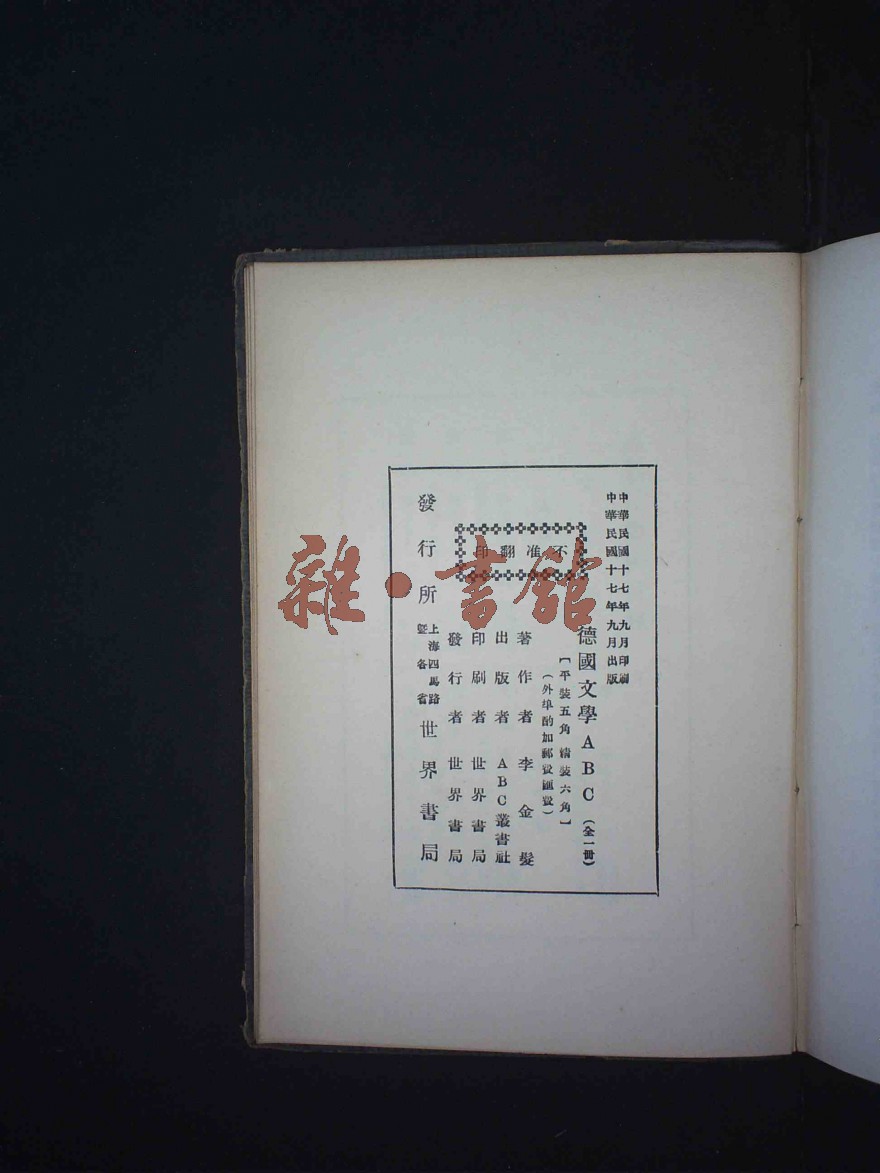 中華民國十七年九月印刷
中華民國十七年九月出版
德國文學ABC（全一冊）
［平裝五角 精裝六角］
（外埠酌加郵費匯費）
不准翻印
著作者 李金髮
出版者 ABC叢書社
印刷者 世界書局
發行者 世界書局
發行所 上海四馬路暨各省 世界書局
雜·書館